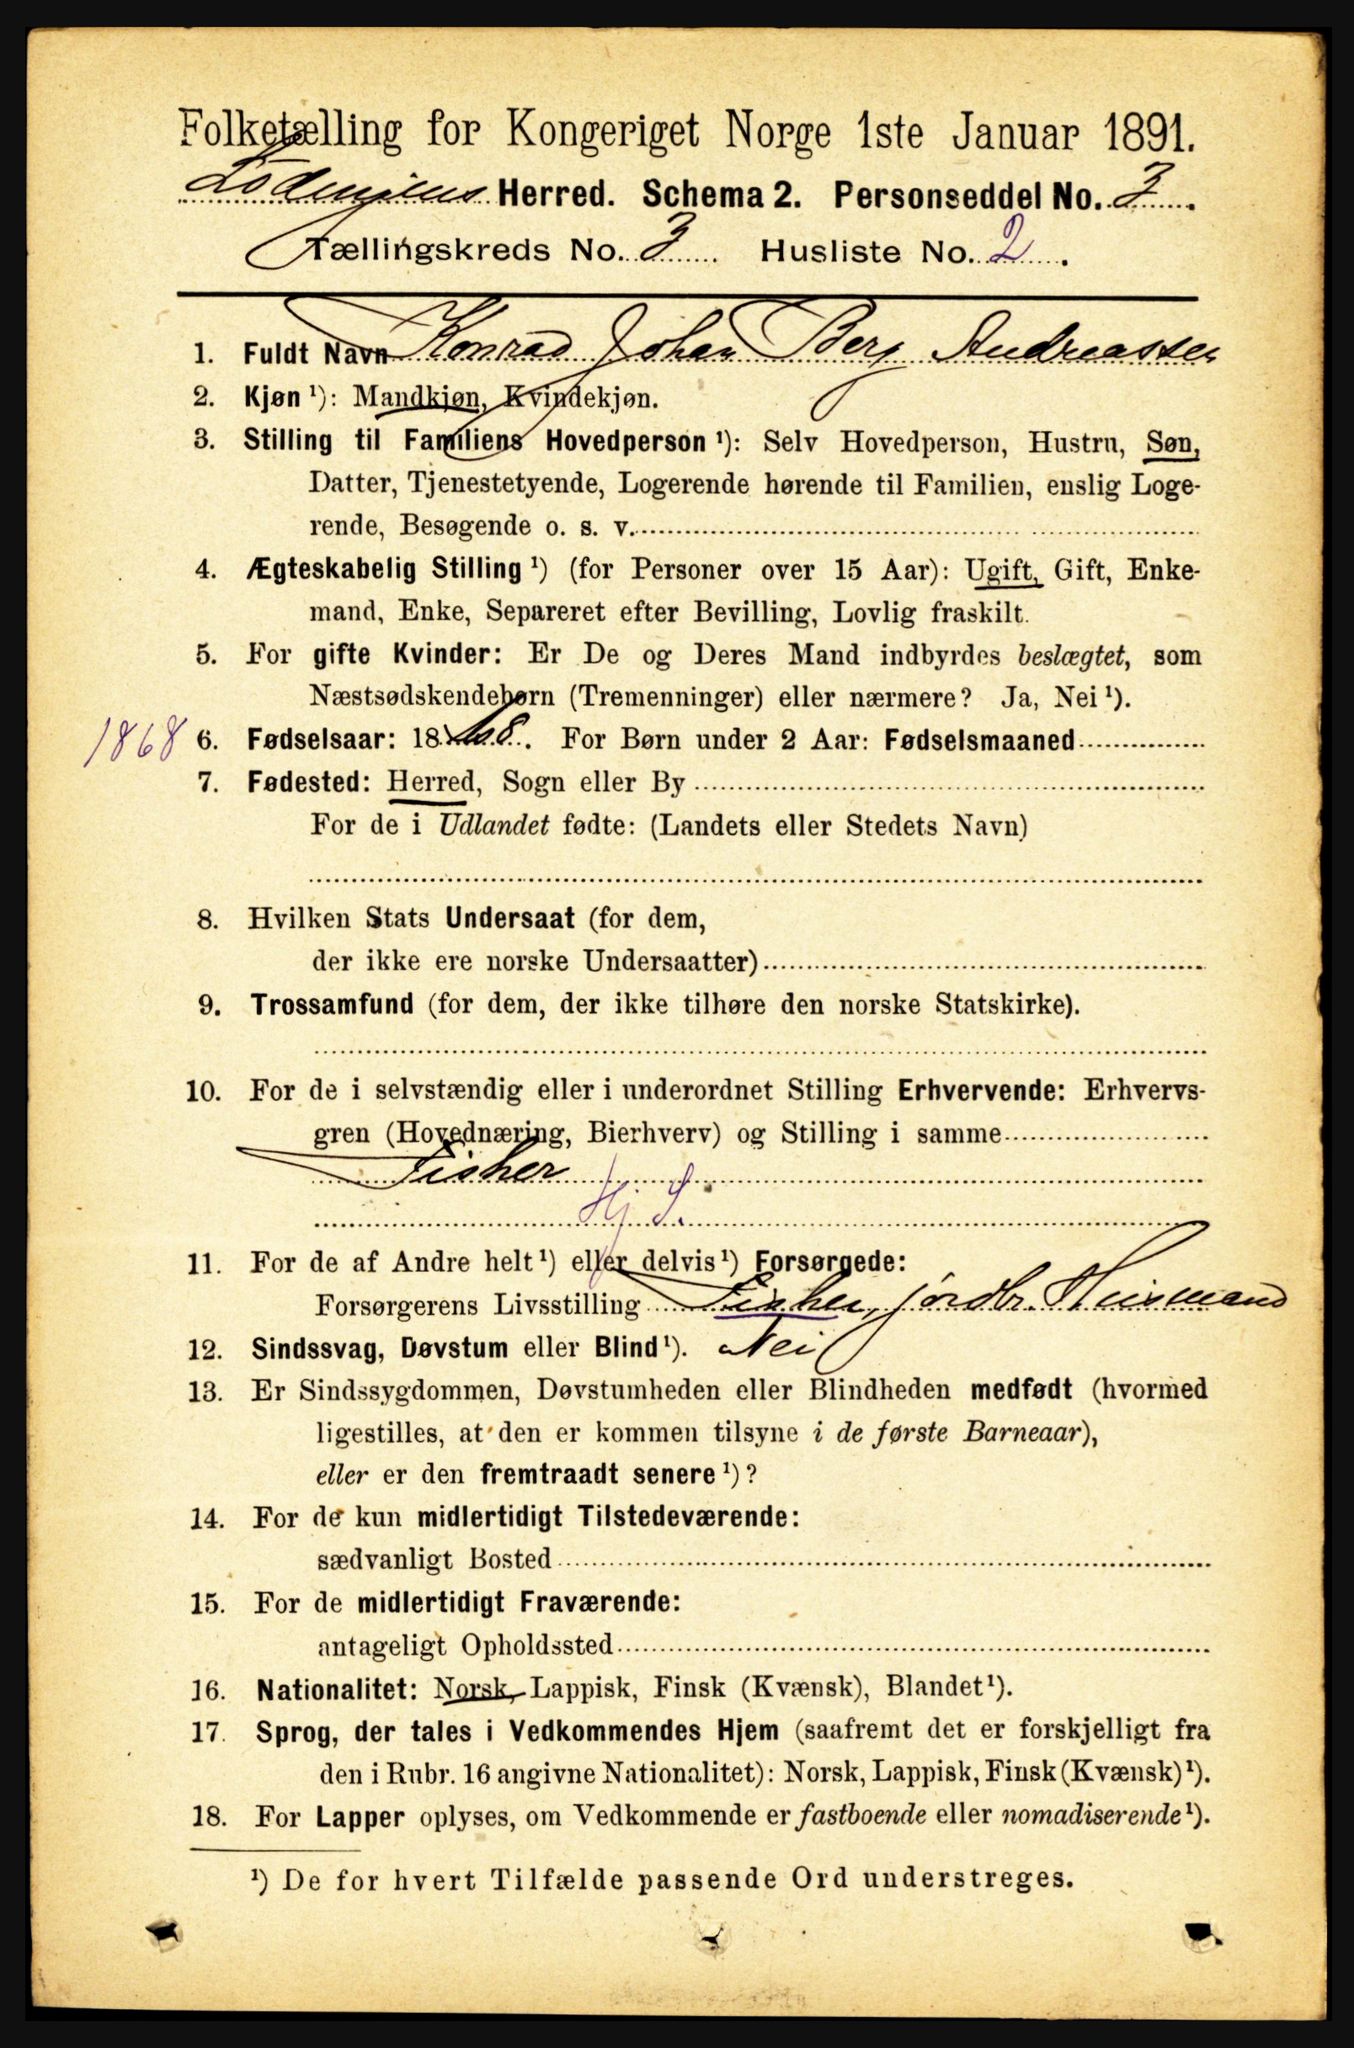 Folketælling for Kongeriget Norge 1ste Januar 1891.
Lødingens Herred. Schema 2. Personseddel No. 3.
Tællingskreds No. 3. Husliste No. 2.
1. Fuldt Navn Konrad Johan Berg Andreassen
2. Kjøn ¹): Mandkjøn, Kvindekjøn.
3. Stilling til Familiens Hovedperson ¹): Selv Hovedperson, Hustru, Søn,
Datter, Tjenestetyende, Logerende hørende til Familien, enslig Loge-
rende, Besøgende o. s. v.
4. Ægteskabelig Stilling ¹) (for Personer over 15 Aar): Ugift, Gift, Enke-
mand, Enke, Separeret efter Bevilling, Lovlig fraskilt.
5. For gifte Kvinder: Er De og Deres Mand indbyrdes beslægtet, som
Næstsødskendebørn (Tremenninger) eller nærmere? Ja, Nei ¹).
1868 6. Fødselsaar: 1868. For Børn under 2 Aar: Fødselsmaaned
7. Fødested: Herred, Sogn eller By
For de i Udlandet fødte: (Landets eller Stedets Navn)
8. Hvilken Stats Undersaat (for dem,
der ikke ere norske Undersaatter)
9. Trossamfund (for dem, der ikke tilhøre den norske Statskirke).
10. For de i selvstændig eller i underordnet Stilling Erhvervende: Erhvervs-
gren (Hovednæring, Bierhverv) og Stilling i samme
Fisker
Hj S.
11. For de af Andre helt ¹) eller delvis ¹) Forsørgede:
Forsørgerens Livsstilling Fisker, jordbr. Husmand
12. Sindssvag, Døvstum eller Blind ¹). Nei
13. Er Sindssygdommen, Døvstumheden eller Blindheden medfødt (hvormed
ligestilles, at den er kommen tilsyne i de første Barneaar),
eller er den fremtraadt senere ¹)?
14. For de kun midlertidigt Tilstedeværende:
sædvanligt Bosted
15. For de midlertidigt Fraværende:
antageligt Opholdssted
16. Nationalitet: Norsk, Lappisk, Finsk (Kvænsk), Blandet ¹).
17. Sprog, der tales i Vedkommendes Hjem (saafremt det er forskjelligt fra
den i Rubr. 16 angivne Nationalitet): Norsk, Lappisk, Finsk (Kvænsk) ¹).
18. For Lapper oplyses, om Vedkommende er fastboende eller nomadiserende ¹).
¹) De for hvert Tilfælde passende Ord understreges.